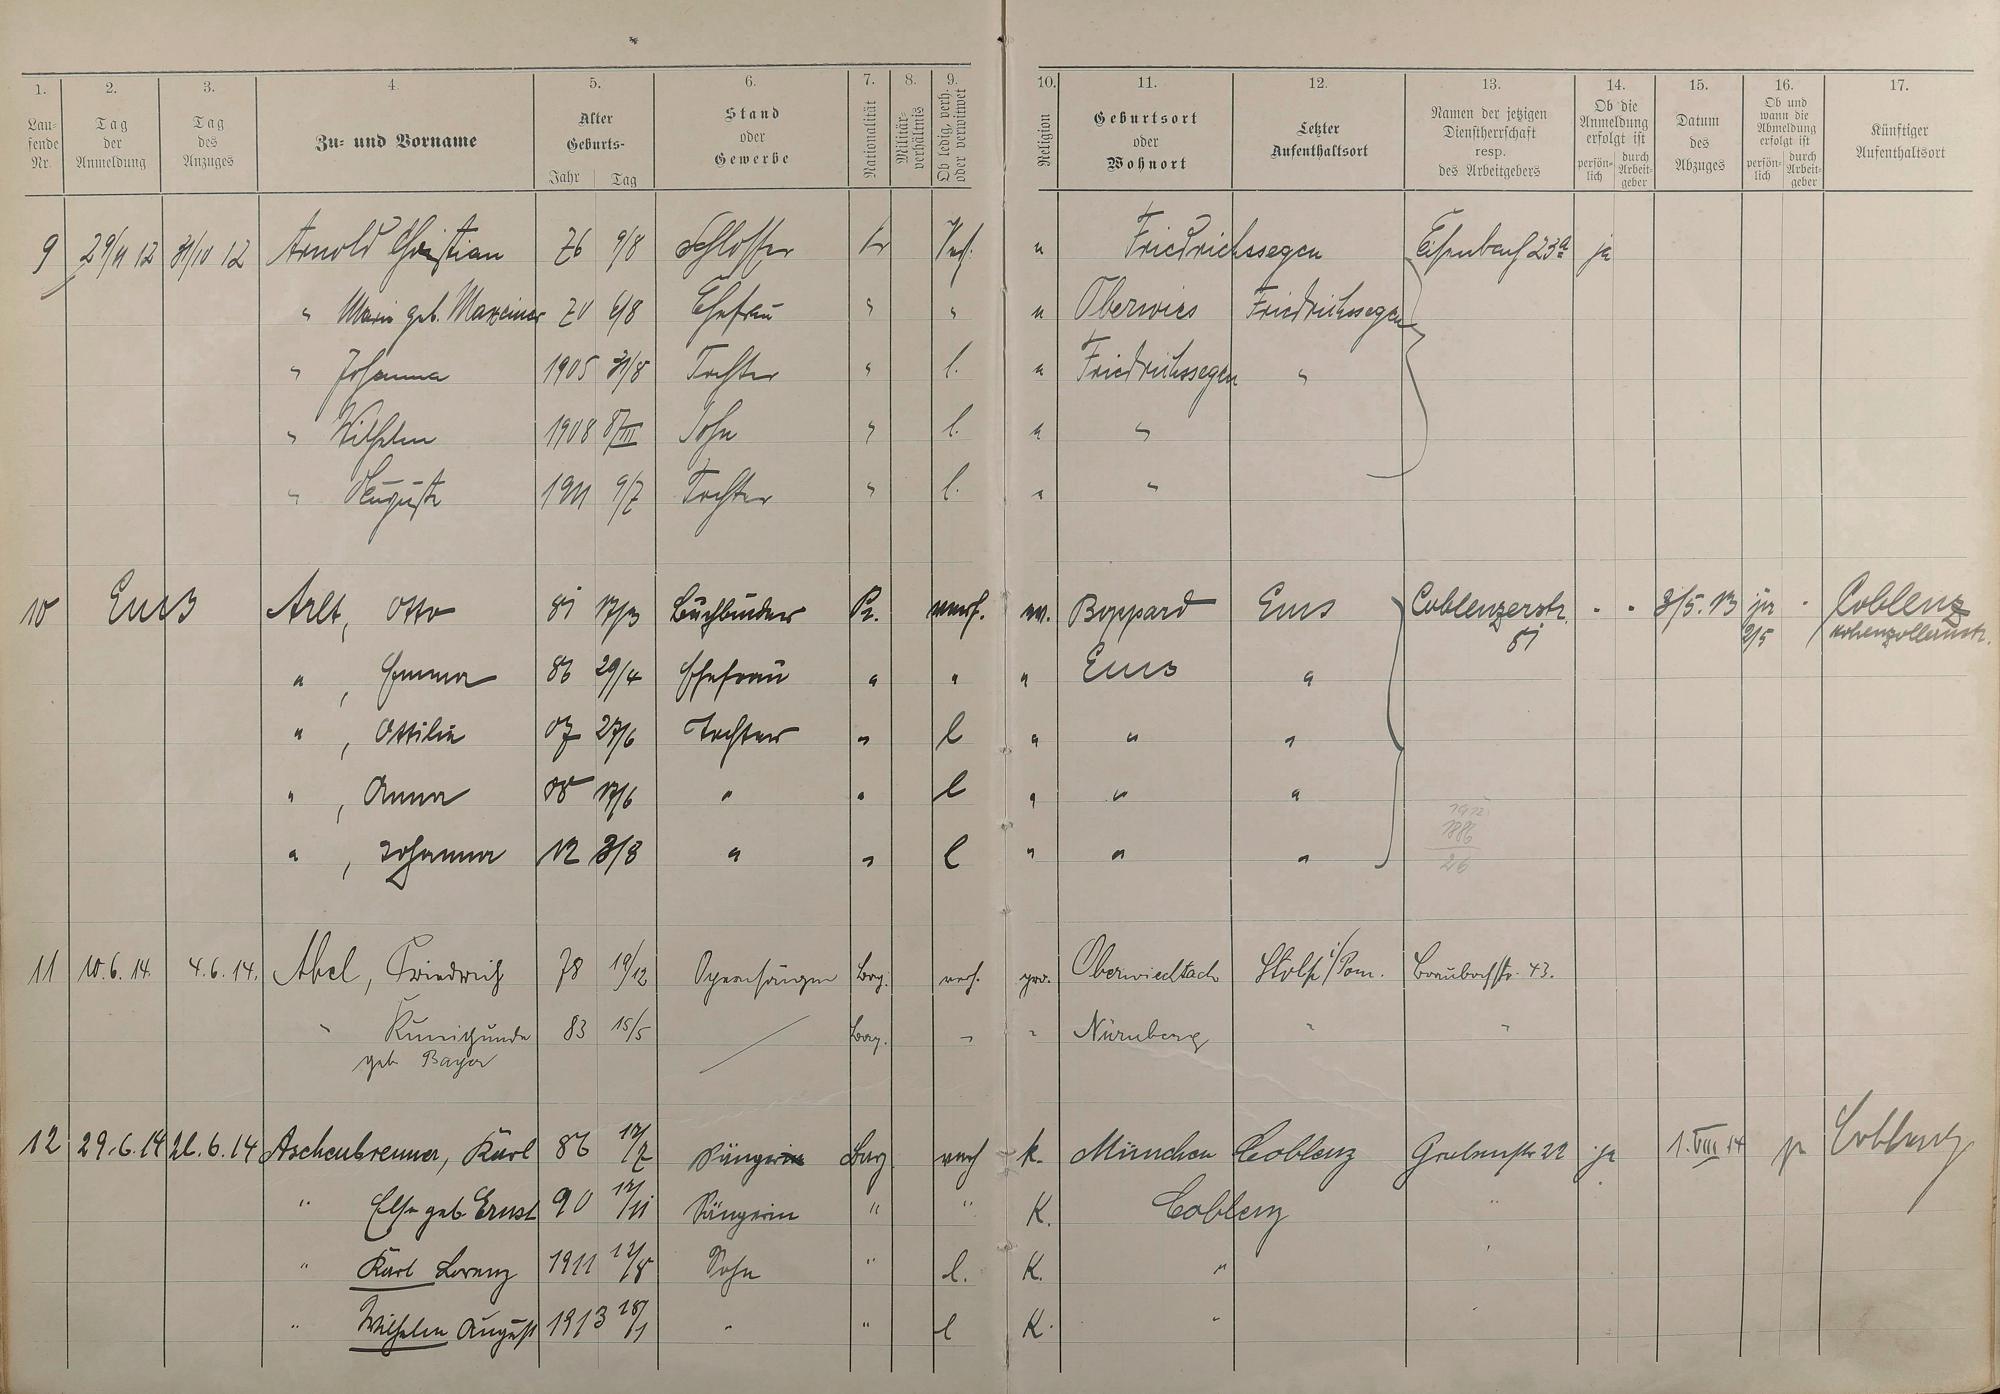 1. 2. 3. 4 5. 6. 7. 8. 9. 10. 11. 12. 13. 14. 15. 16. 17.
Lau-
fende
Nr.
Tag
der
Anmeldung
Tag
des
Anzuges
Zu- und Vorname
Alter
Geburts-
Jahr Tag
Stand
oder
Gewerbe
Nationalität
Militär-
verhältnis
Ob ledig, verh.
oder verwitwet
Religion
Geburtsort
oder
Wohnort
Letzter
Aufenthaltsort
Namen der jetzigen
Dienstherrschaft
resp.
des Arbeitgebers
Ob die
Anmeldung
erfolgt ist
persön-
lich
durch
Arbeit-
geber
Datum
des
Abzuges
Ob und
wann die
Abmeldung
erfolgt ist
persön-
lich
durch
Arbeit-
geber
Künftiger
Aufenthaltsort
9 29/11 12 31/10 12 Arnold Christian 76 9/8 Schlosser Pr Verh. " Friedrichssegen 23a ja
" Marie geb. Maxeiner 70 6/8 Ehefrau " " " Oberwies Friedrichssegen
" Johanna 1905 31/8 Tochter " l. " Friedrichssegen "
" Wilhelm 1908 8/III Sohn " l. " "
" Auguste 1911 9/7 Tochter " l. " "
10 Ems Arlt, Otto 81 17/3 Buchbinder Pr. verh. ev. Boppard Ems Coblenzerstr. - - 3/5. 13 ja - Coblenz
81 2/5 Hohenzollernstr.
" , Emma 86 29/4 Ehefrau " " " Ems "
" , Ottilie 07 27/6 Tochter " l " " "
" , Anna 08 17/6 " " l " " "
1912
1886
26
" , Johanna 12 3/8 " " l " " "
11 10.6.14. 4.6.14. Abel, Friedrich 78 19/12 Opernsänger Bay. verh. pro. Oberviechtach Stolp i/Pom. Braubachstr. 43.
" Kunigunde 83 15/5 Bay. " " Nürnberg " "
geb Bayer
12 29.6.14 26.6.14 Aschenbrenner, Karl 86 17/7 Sänger Bay verh k. München Coblenz Grabenstr 22 ja 1.VIII 14 ja Coblenz
" Else geb Ernst 90 17/11 Sängerin " " K. Coblenz "
" Karl Lorenz 1911 12/8 Sohn " l. K. " "
" Wilhelm August 1913 18/1 " " l K. " "